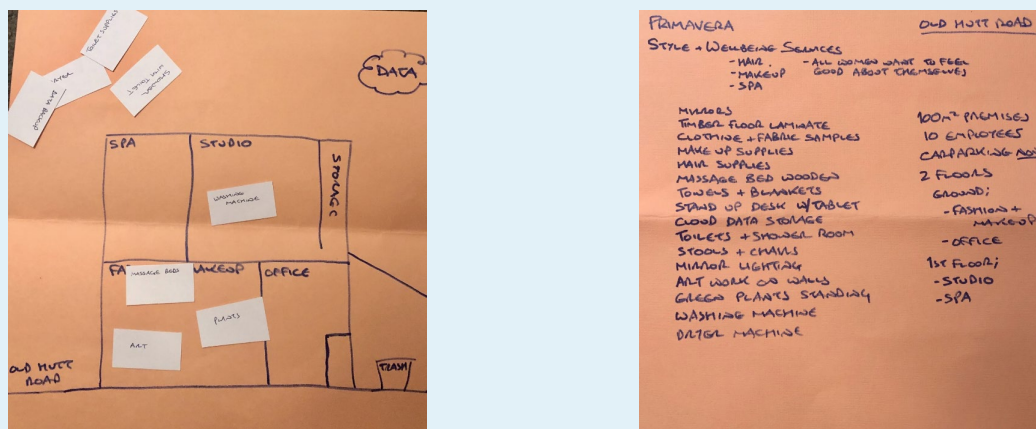 TOILET SUPPLIES
SHOWER
WITH TOILET
DATA BACKUP
DATA
SPA
STUDIO
STORAGE
WASHING
MACHINE
FA
MASSAGE BEDS
MAKEUP
OFFICE
PLANTS
ART
OLD MUTT
ROAD
TRASH
PRIMAVERA
OLD MUTT ROAD
STYLE + WELLBEING SERVICES
- HAIR. - ALL WOMEN WANT TO FEEL
- MAKEUP GOOD ABOUT THEMSELVES
- SPA
MIRRORS
TIMBER FLOOR LAMINATE
CLOTHING + FABRIC SAMPLES
MAKE UP SUPPLIES
HAIR SUPPLIES
MASSAGE BED WOODEN
TOWELS + BLANKETS
STAND UP DESK W/TABLET
CLOUD DATA STORAGE
TOILETS + SHOWER ROOM
STOOLS + CHAIRS
MIRROR LIGHTING
ART WORK ON WALLS
GREEN PLANTS STANDING
WASHING MACHINE
DRYER MACHINE
100m² PREMISES
10 EMPLOYEES
CARPARKING
2 FLOORS
GROUND;
- FASHION +
MAKEUP
- OFFICE
1ST FLOOR;
- STUDIO
- SPA